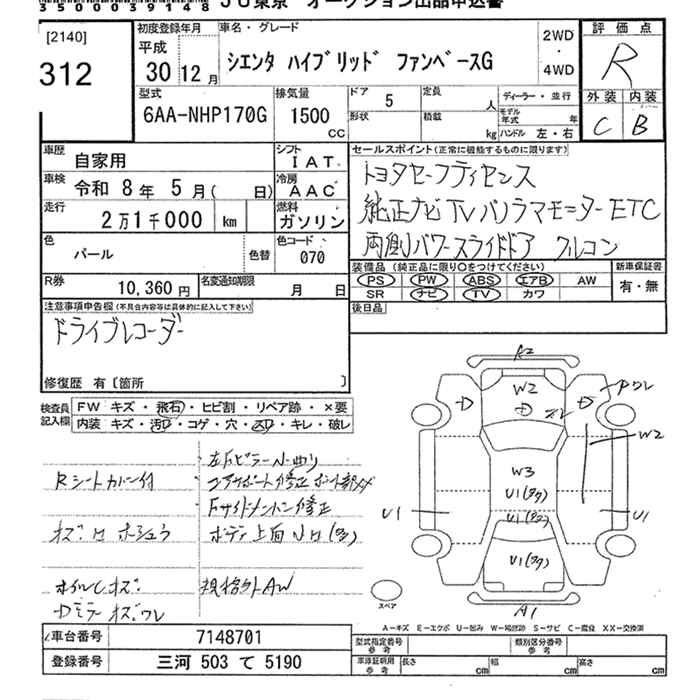 35000391​48
JU東京 オークション出品申込書
[2140]
312
初度登録年月
平成
30 12 月
車名・グレード
シエンタ ハイブリッド ファンベースG
2WD
・
4WD
評価点
R
外装 内装
C B
型式
6AA-NHP170G
排気量
1500
CC
ドア
5
形状
定員
人
積載
kg
ディーラー・並行
モデル年式
年
ハンドル 左・右
車歴
自家用
シフト
IAT
車検
令和 8 年 5 月( 日)
冷房
AAC
走行
2万1千000 km
燃料
ガソリン
色
パール
色替
色コード
070
R券
10,360 円
名変通知期限
月 日
セールスポイント(正常に機能するものに限ります)
トヨタセーフティセンス
純正ナビ TV パノラマモニター ETC
両側パワースライドドア フルコン
装備品(純正品に限り○をつけてください)
PS PW ABS エアB AW
SR ナビ TV カワ
新車保証書
有・無
後日品
注意事項申告欄(不具合内容等は具体的に記入して下さい)
ドライブレコーダー
修復歴 有〔箇所 〕
検査員
記入欄
FW キズ・飛石・ヒビ割・リペア跡・×要
内装 キズ・汚れ・コゲ・穴・スレ・キレ・破レ
Rシートカバー付
コアサポート修正
ボディ上面
規格外AW
A2
W2
D
D
D
W2
W3
U1(多)
U1
U1
U1(多)
A1
スペア
A-キズ E-エクボ U-凹み W-補修跡 S-サビ C-腐食 XX-交換済
車台番号
7148701
登録番号
三河 503 て 5190
型式指定番号
参考
類別区分番号
参考
車庫証明用
参考
長さ
cm
幅
cm
高さ
cm